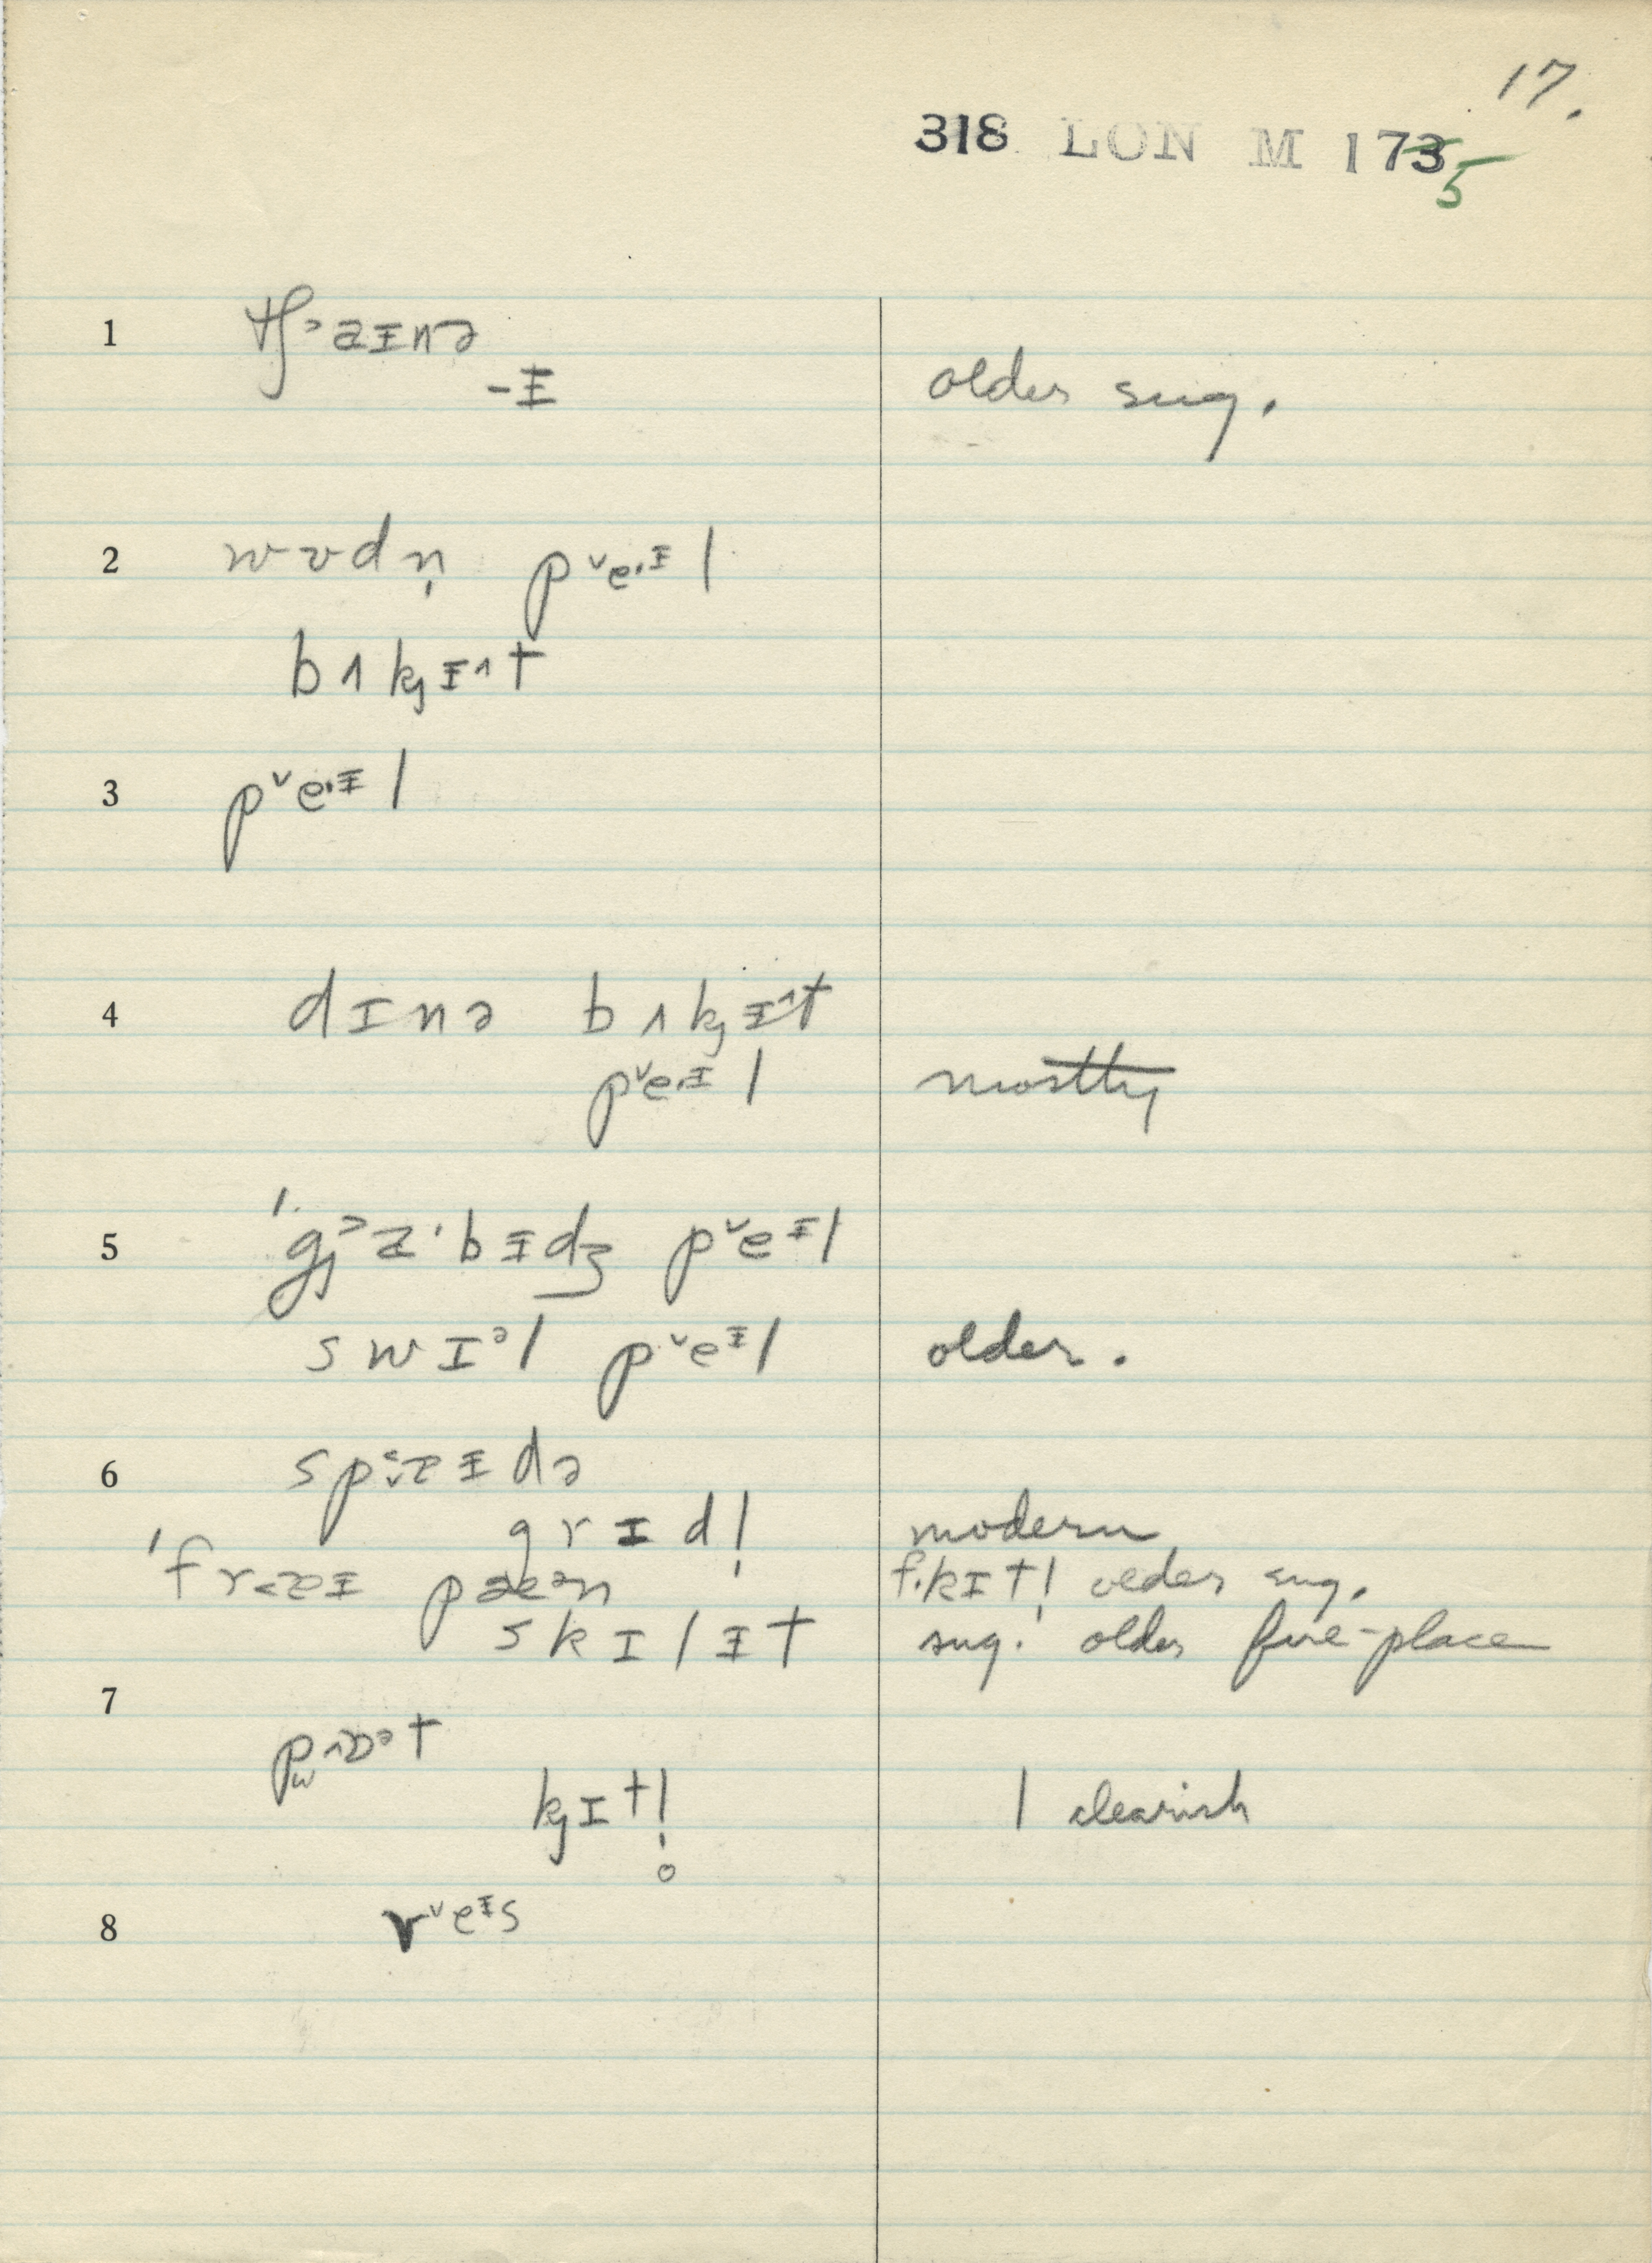 17.
318 LON M 1735
1 tʃ˃aɪnə
-ɪ older sug.
2 wʊdn̩ p˅e·ɪl
bʌkɪ^t
3 p˅e·ɪl
4 dɪnə bʌkɪ^t
p˅e·ɪl mostly
5 'g˃a·bɪdʒ p˅eɪl
swɪəl p˅eɪl older.
6 spaɪdə
grɪdl̩ modern
'fraɪ pæən f.kɪtl̩ older sug.
skɪlɪt sug. older fire-place
7
p^ɒət
kɪtl̩ l clearish
8 v˅eɪs